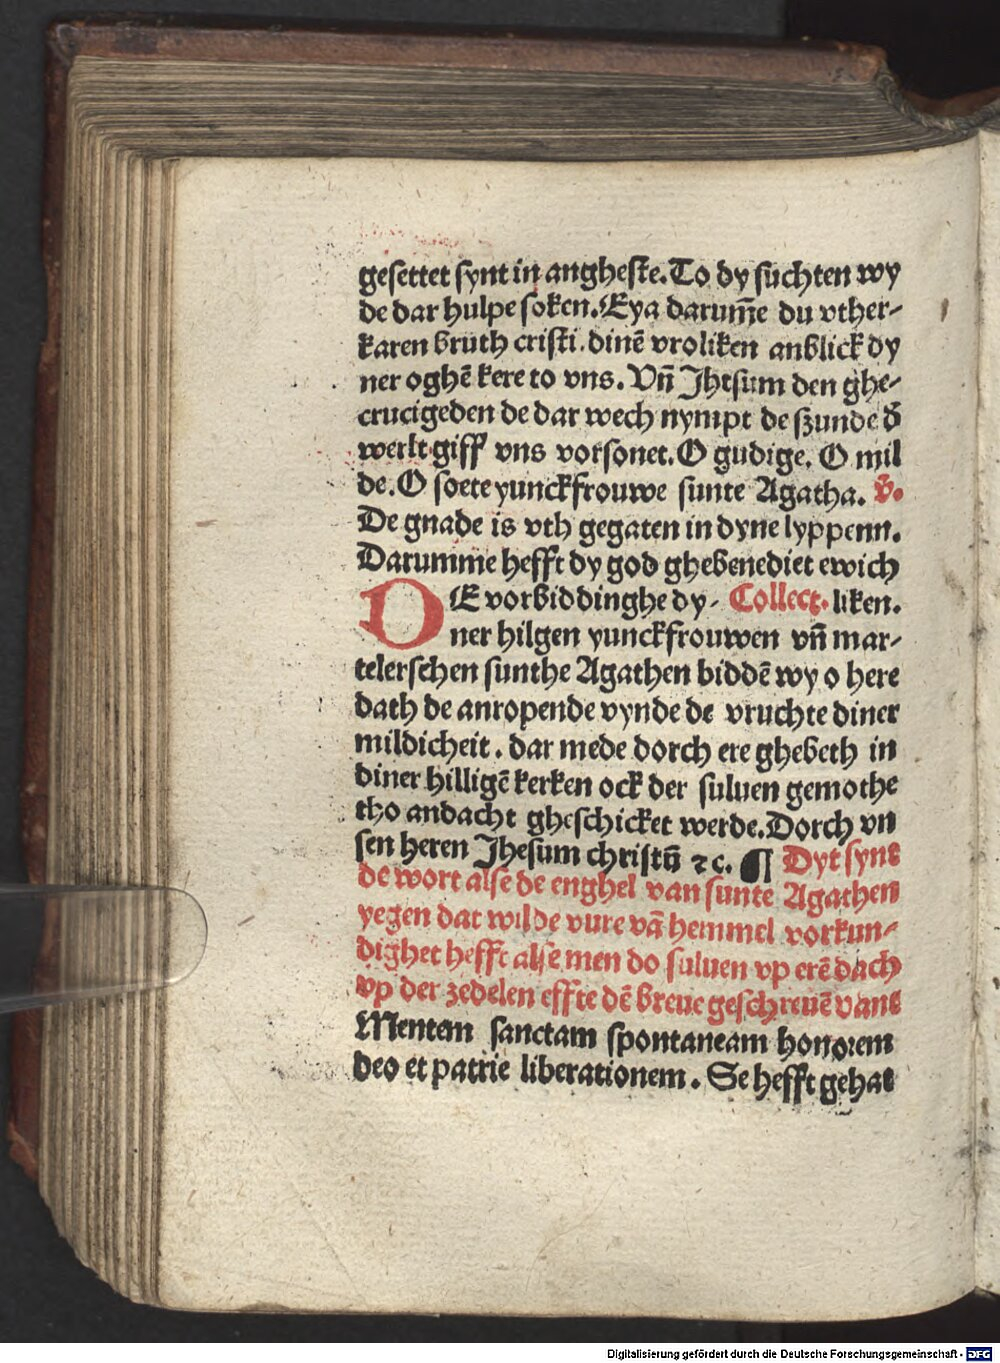 gesettet synt in angheste. To dy suchten wy
de dar hulpe soken. Eya darum̄e du vther-
karen bruth cristi. dinē vroliken anblick dy
ner oghē kere to vns. Vn̄ Jhesum den ghe-
crucigeden de dar wech nympt de szunde d̄
werlt giff vns vorsonet. O gudige. O mil
de. O soete yunckfrouwe sunte Agatha. v̄.
De gnade is vth gegaten in dyne lyppenn.
Darumme hefft dy god ghebenediet ewich
DE vorbiddinghe dy- Collect. liken.
ner hilgen yunckfrouwen vn̄ mar-
telerschen sunthe Agathen biddē wy o here
dath de anropende vynde de vruchte diner
mildicheit. dar mede dorch ere ghebeth in
diner hilligē kerken ock der suluen gemothe
tho andacht gheschicket werde. Dorch vn
sen heren Jhesum christū ⁊c. ¶ Dyt synt
de wort alse de enghel van sunte Agathen
yegen dat wilde vure vā hemmel vorkun-
dighet hefft alse men do suluen vp erē dach
vp der zedelen effte dē breue geschreuē vant
Mentem sanctam spontaneam honorem
deo et patrie liberationem. Se hefft gehat
Digitalisierung gefördert durch die Deutsche Forschungsgemeinschaft - DFG